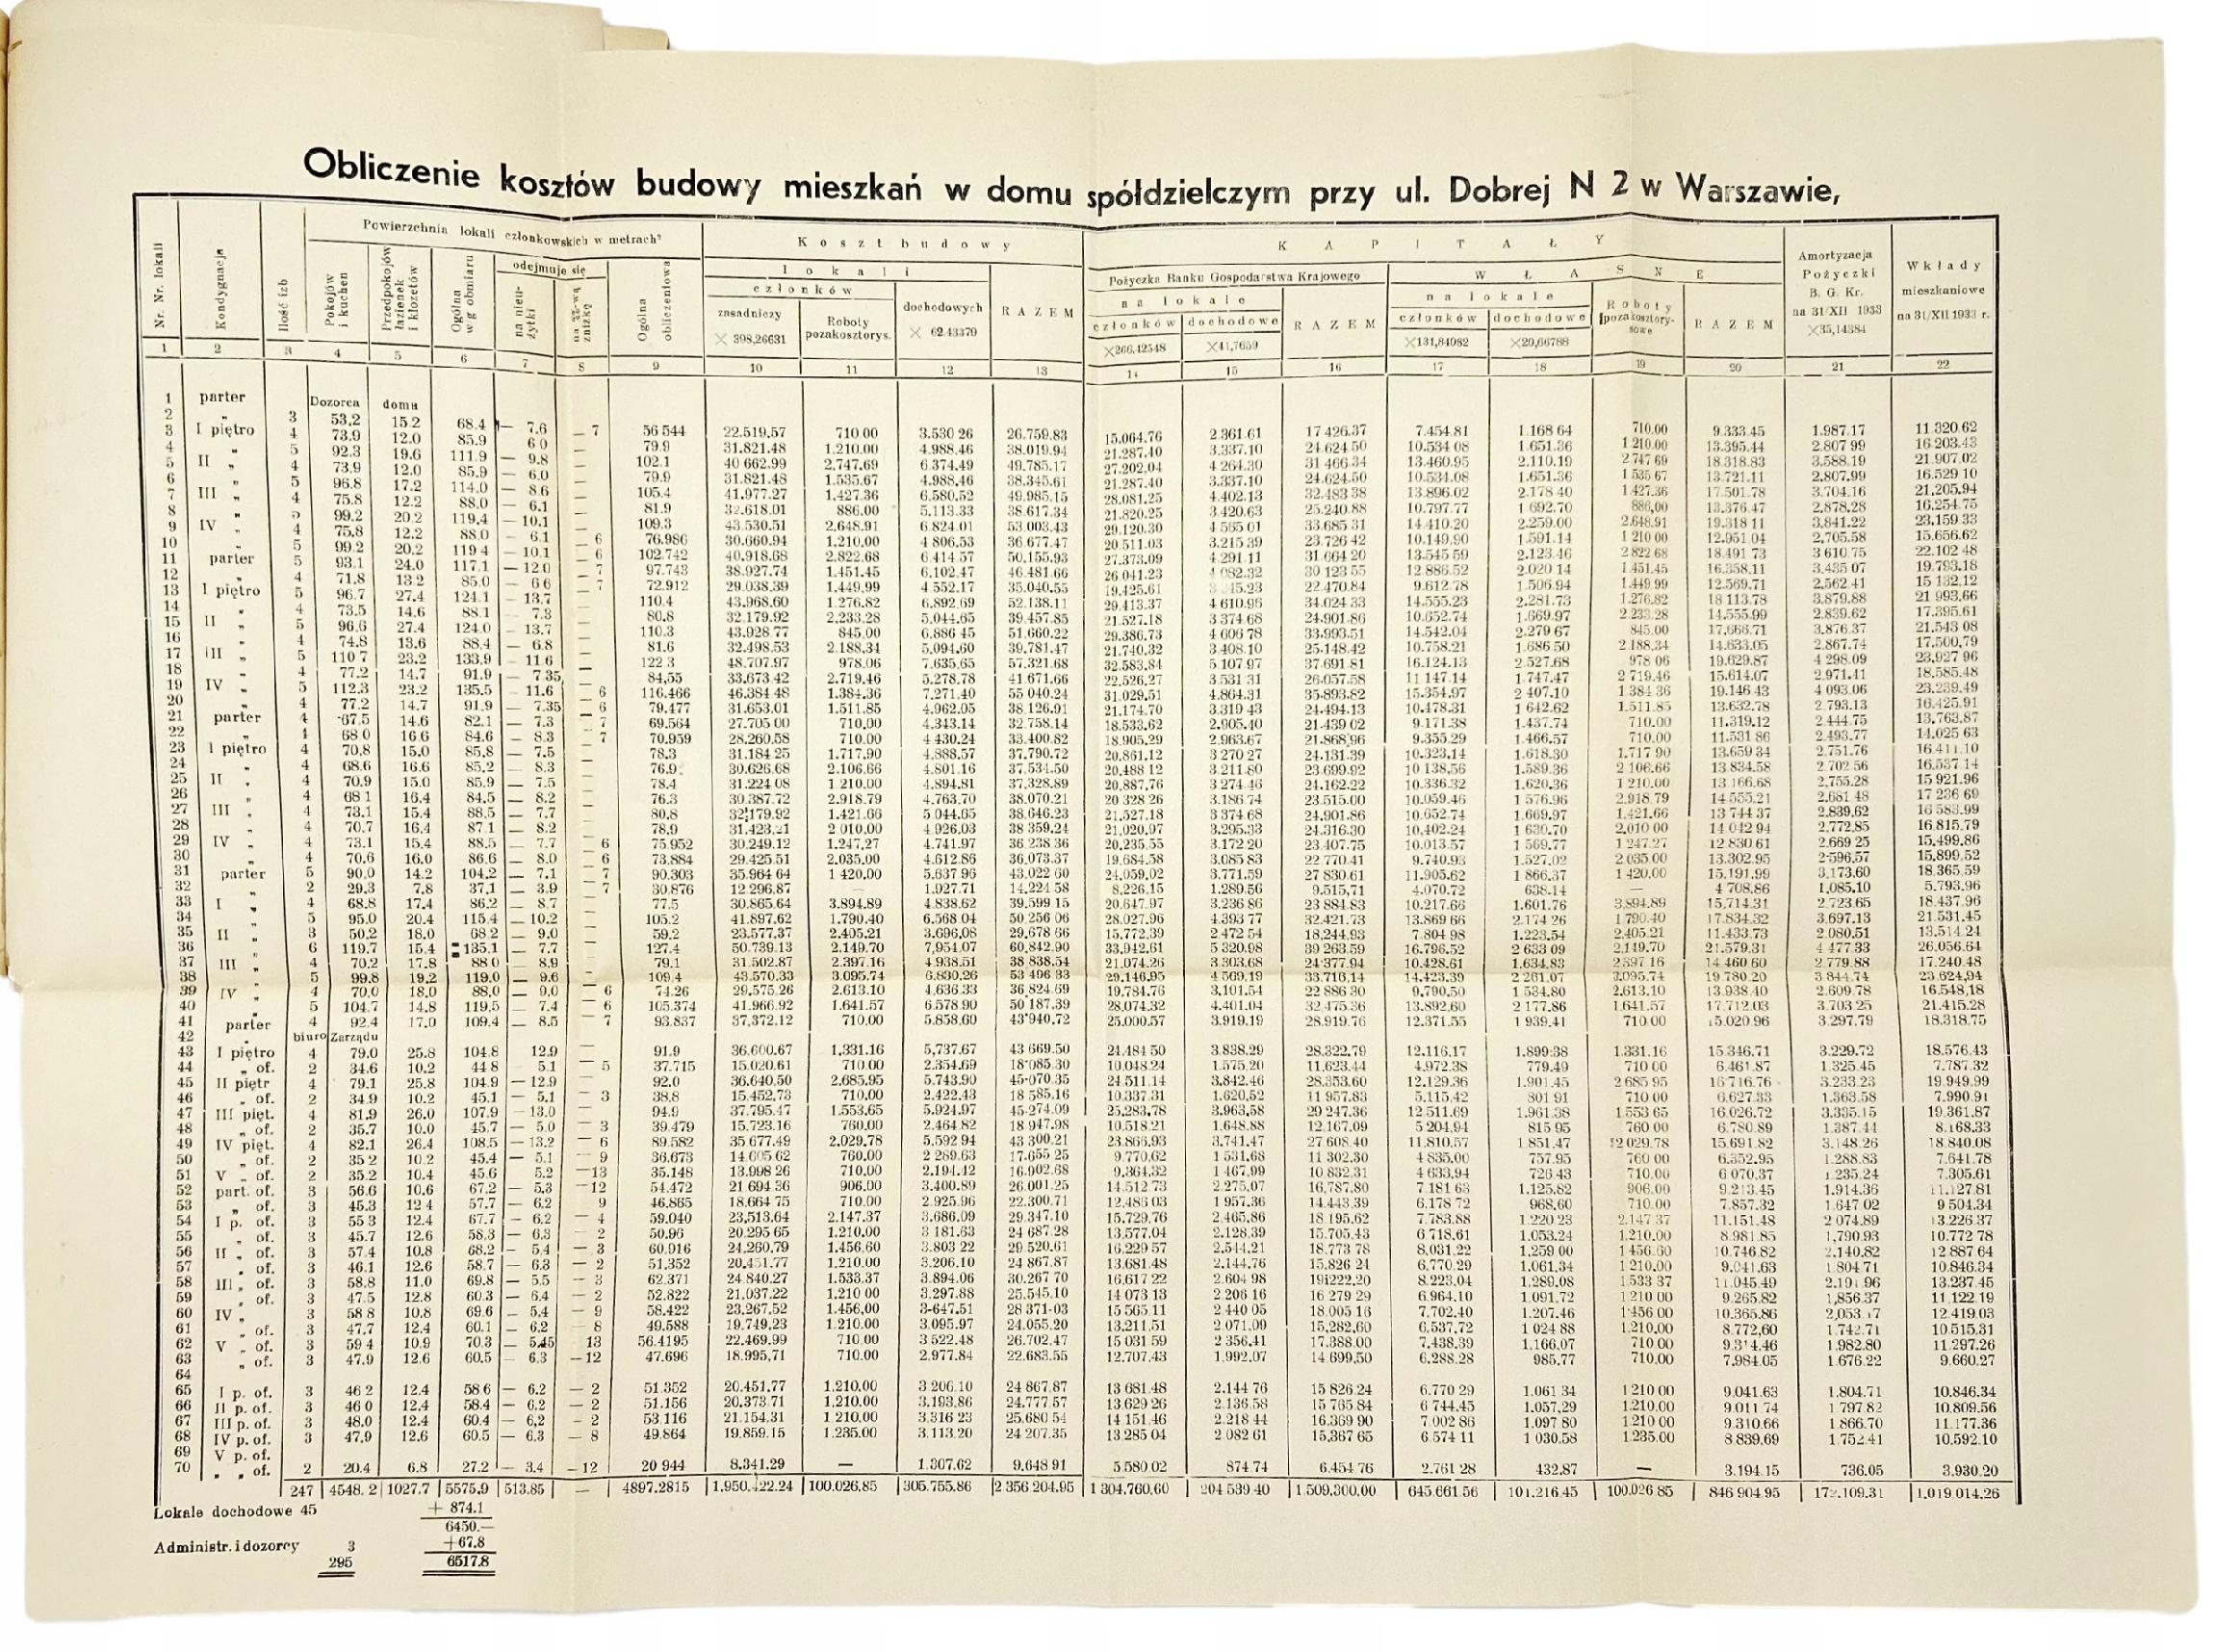 Obliczenie kosztów budowy mieszkań w domu spółdzielczym przy ul. Dobrej N 2 w Warszawie,
Nr. Nr. lokali
Kondygnacja
Ilość izb
Powierzchnia lokali członkowskich w metrach²
Pokojów i kuchen
Przedpokojów łazienek i klozetów
Ogólna wg obmiaru
odejmuje się
na nieużytki
zniżkę
Ogólna obliczeniowa
Koszt budowy
lokali
członków
zasadniczy × 398,26631
Roboty pozakosztorys.
dochodowych × 62.43379
RAZEM
KAPITAŁY
Pożyczka Banku Gospodarstwa Krajowego
na lokale
członków ×266,42548
dochodowe ×41,7659
RAZEM
WŁASNE
na lokale
członków ×131,84082
dochodowe ×20,66788
Roboty pozakosztorysowe
RAZEM
Amortyzacja Pożyczki B. G. Kr. na 31/XII 1933 ×35,14384
Wkłady mieszkaniowe na 31/XII 1933 r.
1 2 3 4 5 6 7 8 9 10 11 12 13 14 15 16 17 18 19 20 21 22
1 parter Dozorca domu
2 „ 3 53,2 15 2 68.4 — 7.6 — 7 56 544 22.519,57 710 00 3.530 26 26.759.83 15.064.76 2.361.61 17 426.37 7.454.81 1.168 64 710.00 9.333.45 1.987.17 11.320 62
3 I piętro 4 73.9 12.0 85.9 6 0 — 79.9 31.821.48 1.210.00 4.988.46 38.019.94 21.287.40 3.337.10 24 624 50 10.534 08 1.651.36 1 210.00 13.395.44 2.807 99 16 203.43
4 „ 5 92.3 19.6 111.9 — 9.8 — 102.1 40 662.99 2.747.69 6 374.49 49.785.17 27.202.04 4 264.30 31 466 34 13.460.95 2.110.19 2 747 69 18.318.83 3.588.19 21.907.02
5 II „ 4 73.9 12.0 85.9 — 6.0 — 79.9 31.821.48 1.535.67 4.988.46 38.345.61 21.287.40 3.337.10 24.624.50 10.534.08 1.651.36 1 535 67 13.721.11 2.807.99 16.529 10
6 „ 5 96.8 17.2 114.0 — 8 6 — 105.4 41.977.27 1.427.36 6.580.52 49.985.15 28.081.25 4.402.13 32.483 38 13.896.02 2.178 40 1 427.36 17.501.78 3.704.16 21,205.94
7 III „ 4 75.8 12.2 88.0 — 6.1 — 81.9 32.618.01 886.00 5.113.33 38.617.34 21.820.25 3.420.63 25.240.88 10.797.77 1 692.70 886,00 13.376.47 2.878.28 16.254.75
8 „ 5 99.2 20 2 119.4 — 10.1 — 109.3 43.530.51 2.648.91 6 824.01 53 003.43 29.120.30 4 565 01 33.685 31 14 410.20 2.259.00 2.648.91 19.318 11 3,841.22 23,159 33
9 IV „ 4 75.8 12.2 88.0 — 6.1 — 6 76.986 30.660.94 1.210.00 4 806.53 36 677.47 20.511.03 3 215.39 23.726 42 10.149.90 1.591.14 1 210 00 12.951 04 2.705.58 15.656.62
10 „ 5 99.2 20.2 119 4 — 10.1 — 6 102.742 40.918.68 2.822.68 6 414.57 50.155.93 27.373.09 4 291.11 31 664 20 13.545 59 2.123.46 2 822 68 18.491 73 3 610 75 22.102 48
11 parter 5 93.1 24.0 117.1 — 12 0 — 7 97.743 38.927.74 1.451.45 6,102.47 46.481.66 26 041.23 30 123 55 12 886.52 2.020 14 1.451.45 16.358.11 3,435 07 19.793.18
12 „ 4 71.8 13 2 85.0 — 6 6 — 7 72.912 29.038.39 1.449,99 4 552.17 35 040.55 19.425.61 22.470.84 9 612.78 1 506.94 1 449.99 12.569.71 2,562 41 15 132,12
13 I piętro 5 96.7 27.4 124.1 — 13,7 — 110.4 43.968.60 1.276.82 6,892,69 52.138.11 29.413.37 4 610.96 34.024 33 14.555.23 2.281.73 1.276.82 18 113.78 3.879.88 21 993,66
14 „ 4 73.5 14.6 88 1 — 7.3 — 80.8 32.179.92 2,233.28 5 044.65 39.457.85 21.527.18 3 374 68 24.901.86 10.652.74 1.669.97 2 233.28 14.555.99 2.839.62 17.395.61
15 II „ 5 96.6 27.4 124.0 — 13.7 — 110.3 43.928.77 845.00 6.886 45 51.660.22 29.386.73 4 606 78 33.993.51 14.542 04 2.279 67 845.00 17,666.71 3.876.37 21.543 08
16 „ 4 74.8 13.6 88.4 — 6.8 — 81.6 32.498.53 2.188.34 5.094.60 39.781.47 21.740.32 3 408.10 25.148.42 10.758.21 1.686 50 2 188.34 14.633.05 2.867.74 17.500,79
17 III „ 5 110 7 23.2 133.9 — 11 6 — 122 3 48.707.97 978.06 7.635.65 57,321.68 32.583.84 5 107 97 37 691 81 16.124.13 2 527.68 978 06 19.629.87 4 298.09 23,927 96
18 „ 4 77.2 14.7 91.9 — 7.35 — 84,55 33.673 42 2.719.46 5.278.78 41.671.66 22.526.27 3 531 31 26.057.58 11 147 14 1.747.47 2 719.46 15.614.07 2.971.41 18.585.48
19 IV „ 5 112.3 23.2 135.5 — 11.6 — 6 116.466 46.384 48 1.384.36 7,271.40 55 040.24 31.029.51 4.864.31 35.893.82 15.354,97 2 407.10 1 384 36 19.146 43 4 093.06 23.239.49
20 „ 4 77.2 14.7 91.9 — 7.35 6 79.477 31.653.01 1.511.85 4.962.05 38 126.91 21.174.70 3.319 43 24.494.13 10.478.31 1 642.62 1.511.85 13.632.78 2.793.13 16.425.91
21 parter 4 67.5 14.6 82.1 — 7.3 — 7 69.564 27.705 00 710.00 4,343.14 32 758.14 18.533.62 2.905.40 21.439 02 9.171.38 1 437.74 710.00 11.319.12 2 444.75 13,763.87
22 „ 4 68 0 16.6 84.6 — 8.3 — 7 70.959 28.260.58 710.00 4 430.24 33 400.82 18.905.29 2.963.67 21.868,96 9.355.29 1.466.57 710.00 11.531 86 2.493.77 14.025 63
23 I piętro 4 70,8 15.0 85.8 — 7.5 — 78.3 31.184 25 1.717.90 4.888.57 37,790.72 20,861.12 3 270 27 24.131.39 10.323.14 1.618.30 1.717 90 13.659 34 2.751.76 16.411.10
24 „ 4 68.6 16.6 85.2 — 8.3 — 76.9 30.626.68 2.106.66 4.801.16 37,534.50 20,488 12 3 211.80 23.699.92 10 138.56 1.589.36 2 106.66 13 834.58 2.702 56 16.537 14
25 II „ 4 70.9 15.0 85.9 — 7.5 — 78.4 31.224 08 1 210.00 4.894.81 37,328.89 20,887,76 3 274 46 24.162.22 10.336.32 1.620,36 1 210 00 13 166.68 2,755.28 15 921.96
26 „ 4 68 1 16.4 84.5 — 8.2 — 76.3 30.387.72 2.918.79 4,763.70 38.070.21 20 328 26 3.186 74 23.515.00 10.059.46 1 576.96 2.918.79 14 555.21 2.681 48 17 236 69
27 III „ 4 73.1 15.4 88.5 — 7.7 — 80.8 32,179.92 1.421.66 5 044.65 38.646.23 21,527.18 3 374 68 24.901.86 10 652.74 1.669,97 1.421.66 13 744 37 2,839.62 16 583.99
28 „ 4 70.7 16.4 87.1 — 8.2 — 78.9 31.423.21 2 010.00 4.926.03 38 359.24 21,020.97 3.295.33 24.316.30 10,402.24 1 630.70 2,010 00 14 042 94 2,772.85 16.815.79
29 IV „ 4 73.1 15.4 88.5 — 7.7 — 6 75 952 30.249.12 1.247,27 4.741.97 36 238 36 20.235,55 3.172 20 23 407.75 10.013.57 1 569.77 1 247 27 12 830 61 2.669 25 15,499.86
30 „ 4 70.6 16.0 86.6 — 8.0 — 6 73.884 29.425.51 2.035.00 4.612.86 36.073.37 19,684.58 3.085 83 22 770.41 9.740.93 1.527,02 2 035.00 13.302.95 2·596,57 15,899.52
31 parter 5 90.0 14.2 104.2 — 7.1 — 7 90.303 35.964 64 1 420.00 5.637 96 43 022 60 24.059,02 3.771.59 27 830.61 11.905.62 1 866.37 1 420.00 15.191.99 3,173.60 18.365.59
32 „ 2 29.3 7.8 37.1 — 3.9 — 7 30.876 12 296.87 — 1.927.71 14.224 58 8,226.15 1.289.56 9.515,71 4.070.72 638.14 — 4 708.86 1.085,10 5.793.96
33 I „ 4 68.8 17.4 86.2 — 8.7 — 77.5 30.865.64 3.894.89 4.838.62 39.599 15 20.647.97 3.236 86 23 884.83 10.217.66 1.601.76 3,894.89 15,714.31 2.723.65 18.437.96
34 „ 5 95.0 20.4 115.4 — 10.2 — 105.2 41.897.62 1.790.40 6.568 04 50 256 06 28.027.96 4 393 77 32.421.73 13.869 66 2.174 26 1 790.40 17.834.32 3,697.13 21.531.45
35 II „ 3 50.2 18.0 68.2 — 9.0 — 59.2 23.577.37 2.405.21 3.696,08 29.678 66 15.772.39 2 472 54 18.244.93 7 804 98 1.223.54 2.405.21 11.433.73 2.080.51 13.514 24
36 „ 6 119.7 15.4 135.1 — 7.7 — 127.4 50.739.13 2.149.70 7,954.07 60,842.90 33,942.61 5 320.98 39 263.59 16.796.52 2 633 09 2.149.70 21.579.31 4 477.33 26,056.64
37 III „ 4 70.2 17.8 88 0 — 8.9 — 79.1 31.502.87 2.397.16 4.938.51 38 838.54 21.074.26 3.303.68 24.377.94 10.428.61 1.634.83 2 397 16 14 460 60 2.779.88 17.240.48
38 „ 5 99.8 19.2 119.0 — 9.6 — 109.4 43.570.33 3.095.74 6.830.26 53 496 33 29.146.95 4 569.19 33.716,14 14.423.39 2 261.07 3.095.74 19.780.20 3 844.74 23.624.94
39 IV „ 4 70.0 18.0 88.0 — 9.0 — 6 74.26 29.575.26 2.613.10 4.636 33 36.824.69 19.784.76 3.101.54 22 886 30 9,790.50 1 534.80 2.613.10 13.938 40 2 609.78 16.548.18
40 „ 5 104.7 14.8 119.5 — 7.4 — 6 105.374 41.966.92 1.641.57 6 578 90 50 187.39 28.074.32 4.401.04 32 475 36 13.892.60 2 177.86 1 641.57 17.712.03 3,703 25 21.415.28
41 parter 4 92.4 17.0 109.4 — 8.5 — 7 93.837 37,372.12 710.00 5 858.60 43'940.72 25.000.57 3,919.19 28.919.76 12.371.55 1 939.41 710 00 15.020.96 3,297.79 18.318.75
42 „ biuro Zarządu
43 I piętro 4 79.0 25.8 104.8 12.9 — 91.9 36.600.67 1.331.16 5,737.67 43 669.50 24.484 50 3.838.29 28.322.79 12.116.17 1.899.38 1.331.16 15.346.71 3.229.72 18.576.43
44 „ of. 2 34.6 10.2 44 8 5.1 — 5 37.715 15.020.61 710.00 2.354.69 18 085.30 10.048.24 1.575.20 11.623.44 4.972.38 779.49 710 00 6.461.87 1.325.45 7.787.32
45 II piętr 4 79.1 25.8 104.9 — 12.9 — 92.0 36.640,50 2.685.95 5.743.90 45·070.35 24.511.14 3,842.46 28.353.60 12.129.36 1.901.45 2 685 95 16 716.76 3.233.23 19.949.99
46 „ of. 2 34.9 10.2 45.1 — 5.1 — 3 38.8 15.452.73 710.00 2.422.43 18 585.16 10.337.31 1.620.52 11 957.83 5.115.42 801 91 710 00 6.627.33 1.363.58 7.990.91
47 III pięt. 4 81.9 26.0 107.9 — 13.0 — 94.9 37.795.47 1.553.65 5.924.97 45·274.09 25,283,78 3.963,58 29 247 36 12 511.69 1.961.38 1 553 65 16 026.72 3.335.15 19.361.87
48 „ of. 2 35.7 10.0 45.7 — 5.0 — 3 39.479 15.723.16 760.00 2.464.82 18 947.98 10.518.21 1.648.88 12.167.09 5 204.94 815 95 760 00 6.780.89 1.387.44 8.168.33
49 IV pięt. 4 82.1 26.4 108.5 — 13.2 — 6 89.582 35 677.49 2.029.78 5.592 94 43 300.21 23.866.93 3.741.47 27 608.40 11.810.57 1 851.47 2 029.78 15.691.82 3.148.26 18.840.08
50 „ of. 2 35 2 10.2 45.4 — 5.1 — 9 36.673 14.605.62 760.00 2 289.63 17.655 25 9.770.62 1 531.68 11 302.30 4 835.00 757.95 760 00 6.352.95 1.288.83 7.641.78
51 V „ of. 2 35.2 10.4 45.6 5.2 — 13 35.148 13.998 26 710.00 2.194.12 16.902.68 9.364.32 1 467.99 10 832.31 4 633.94 726 43 710.00 6 070.37 1 235.24 7.305.61
52 part. of. 3 56.6 10.6 67.2 — 5.3 — 12 54.472 21 694 36 906.00 3.400.89 26.001.25 14 512 73 2 275,07 16,787.80 7 181 63 1.125.82 906.00 9.213.45 1.914.36 11.127.81
53 „ of. 3 45.3 12 4 57.7 — 6.2 9 46.865 18.664 75 710.00 2.925.96 22.300.71 12 486 03 1 957.36 14.443.39 6 178 72 968,60 710.00 7.857.32 1 647 02 9 504.34
54 I p. of. 3 55 3 12.4 67.7 — 6.2 — 4 59.040 23,513.64 2.147.37 3,686.09 29.347.10 15.729,76 2.465.86 18 195.62 7.783.88 1 220 23 2.147 37 11.151.48 2 074.89 13.226.37
55 „ of. 3 45.7 12.6 58.3 — 6.3 — 2 50.96 20.295 65 1.210.00 3 181.63 24 687.28 13.577.04 2.128.39 15.705.43 6 718.61 1.053.24 1.210.00 8.981.85 1,790.93 10.772 78
56 II „ of. 3 57.4 10.8 68.2 — 5.4 — 3 60.916 24.260.79 1.456.60 3.803 22 29 520.61 16.229 57 2.544.21 18 773 78 8,031.22 1,259 00 1 456 60 10.746.82 2.140.82 12 887.64
57 „ of. 3 46.1 12.6 58.7 — 6.3 — 2 51.352 20.451.77 1.210.00 3.206.10 24 867.87 13.681.48 2.144.76 15.826 24 6.770.29 1.061.34 1 210.00 9.041.63 1 804 71 10.846.34
58 III „ of. 3 58.8 11.0 69.8 — 5.5 — 3 62.371 24.840.27 1.533.37 3.894.06 30.267 70 16.617 22 2.604 98 19222.20 8.223.04 1.289.08 1.533 37 11.045.49 2.191 96 13.237.45
59 „ of. 3 47.5 12.8 60.3 — 6.4 — 2 52.822 21.037.22 1.210 00 3.297.88 25.545.10 14 073 13 2 206 16 16 279 29 6.964.10 1.091.72 1 210 00 9.265.82 1,856,37 11.122.19
60 IV „ 3 58 8 10.8 69.6 — 5.4 — 9 58.422 23.267,52 1.456,00 3·647.51 28 371·03 15 565 11 2 440 05 18 005.16 7.702,40 1.207.46 1·456 00 10.365.86 2,053.17 12.419.03
61 „ of. 3 47.7 12.4 60.1 — 6.2 — 8 49.588 19.749,23 1.210.00 3.095.97 24.055.20 13.211.51 2 071.09 15.282,60 6,537,72 1 024 88 1.210,00 8.772,60 1.742.71 10 515.31
62 V „ of. 3 59 4 10.9 70.3 — 5.45 13 56.4195 22.469.99 710.00 3 522.48 26.702.47 15 031 59 2 356,41 17.388.00 7,438,39 1.166.07 710 00 9.314.46 1 982.80 11.297.26
63 „ of. 3 47.9 12.6 60.5 — 6.3 — 12 47.696 18.995,71 710.00 2.977.84 22.683.55 12.707.43 1,992.07 14 699,50 6.288.28 985.77 710.00 7,984.05 1 676.22 9.660.27
64
65 I p. of. 3 46 2 12.4 58 6 — 6.2 — 2 51.352 20.451.77 1.210.00 3 206.10 24 867.87 13 681.48 2.144 76 15 826.24 6.770 29 1.061 34 1 210 00 9.041.63 1.804.71 10.846.34
66 II p. of. 3 46 0 12.4 58.4 — 6.2 — 2 51.156 20.373.71 1.210.00 3.193.86 24.777.57 13 629 26 2.136.58 15 765.84 6 744.45 1.057,29 1.210.00 9.011.74 1 797.82 10.809.56
67 III p. of. 3 48.0 12.4 60.4 — 6,2 — 2 53.116 21.154.31 1 210.00 3.316 23 25.680 54 14 151.46 2.218 44 16.369 90 7 002 86 1 097 80 1 210 00 9 310.66 1 866.70 11 177.36
68 IV p. of. 3 47,9 12.6 60.5 — 6.3 — 8 49.864 19.859.15 1.235.00 3.113.20 24 207.35 13 285 04 2 082 61 15,367 65 6.574 11 1 030.58 1 235.00 8 839.69 1.752 41 10.592.10
69 V p. of.
70 „ „ of. 2 20.4 6.8 27.2 — 3.4 — 12 20 944 8.341.29 — 1.307.62 9.648 91 5.580.02 874.74 6.454 76 2.761 28 432.87 — 3.194.15 736.05 3.930.20
247 4548. 2 1027.7 5575.9 513.85 — 4897.2815 1.950.422.24 100.026.85 305.755.86 2 356 204.95 1 304.760.60 204 539 40 1.509,300.00 645.661 56 101.216.45 100.026 85 846 904.95 172.109.31 1,019 014.26
Lokale dochodowe 45 + 874.1
6450.—
Administr. i dozorcy 3 +67.8
295 6517.8